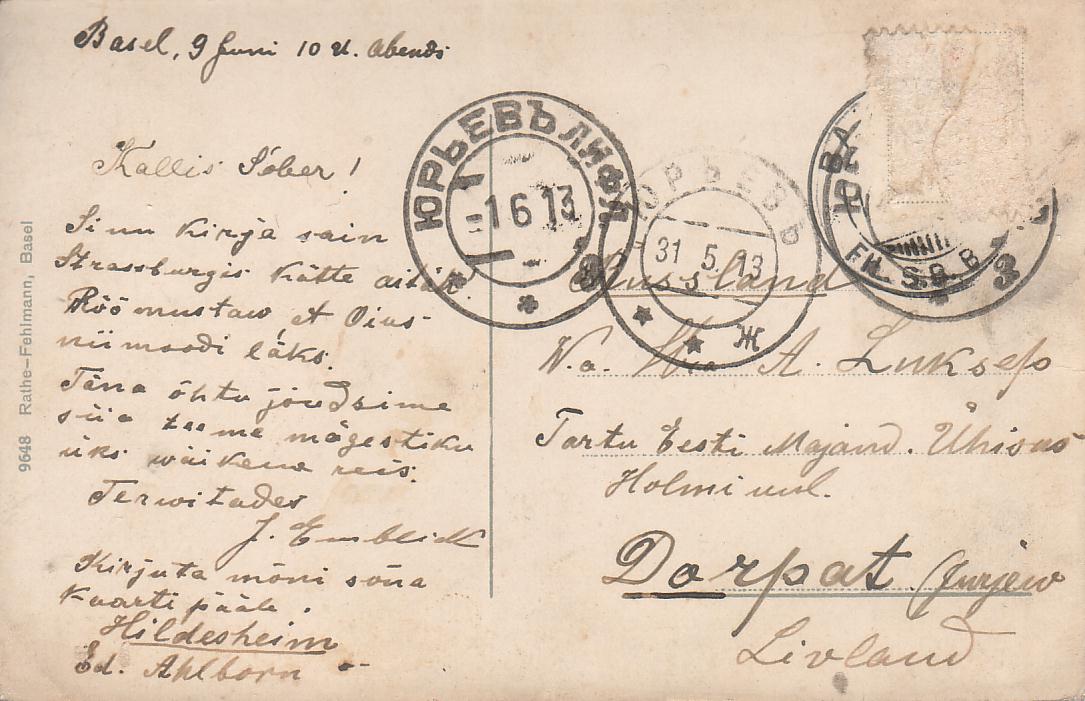 Basel, 9 Juni 10 U. Abends
Kallis Sõber!
Sinu kirja sain
Strassburgis kätte aitäh.
Rõõmustaw et Õius
nii moodi läks.
Täna õhtu jõudsime
siia teeme mägestiku
üks wäikene reis.
Terwitades
J.
Kirjuta mõni sõna
Kaarti pääle.
Hildesheim
Ed. Ahlborn
9648 Rathe-Fehlmann, Basel
ЮРЬЕВЪ ЛИФЛ.
-1 6 13
З
ЮРЬЕВЪ
31 5 13
Ж
FIL. S.B.B.
З
Russland
A. Luksep
Tartu Eesti Majand. Ühisus
Holmi uul.
Dorpat (Jurjew
Livland